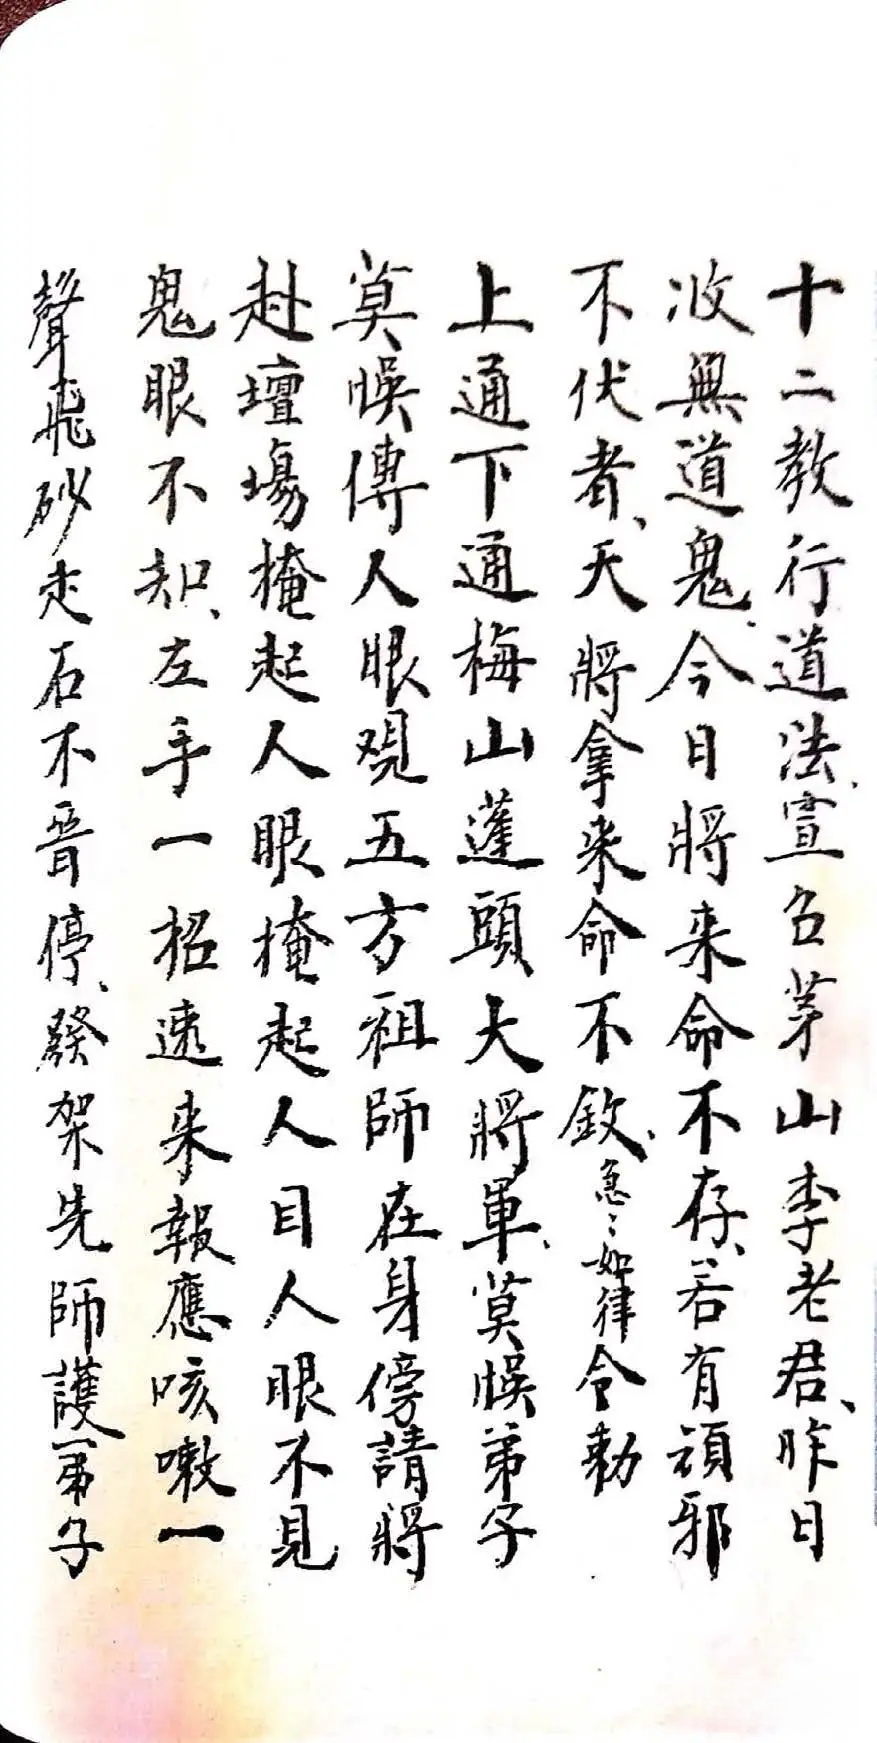 十二教行道法、宣召茅山李老君、昨日
收無道鬼、今日將来命不存、若有頑邪
不伏者、天將拿来命不敘、急〻如律令勅
上通下通梅山蓬頭大將軍、莫悞弟子
莫悞傳人眼观五方祖師在身傍請將
赴壇場掩起人眼掩起人目人眼不見
鬼眼不知、左手一招速来報應咳嗽一
聲飛砂走石不晋停、發架先師護弟子